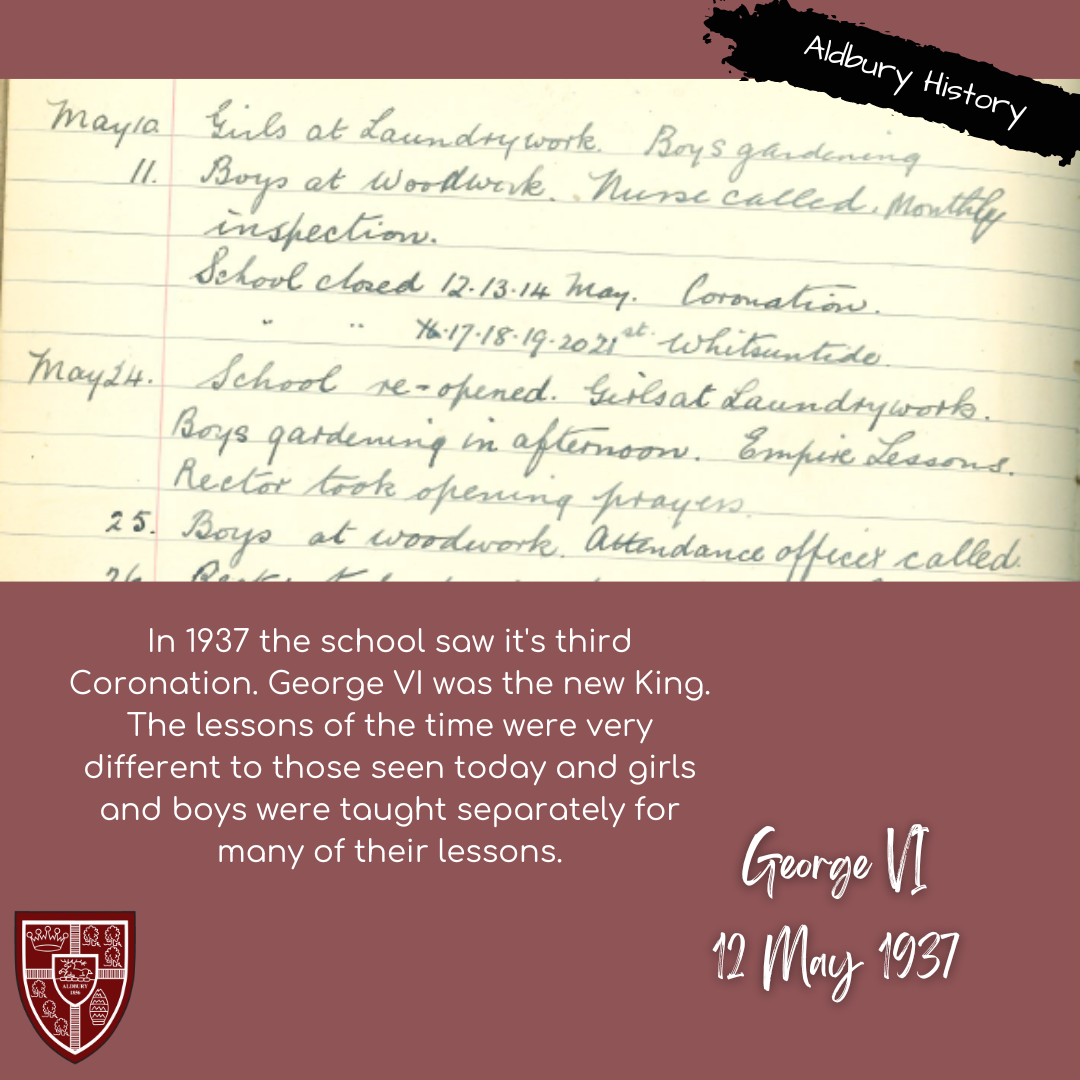 Aldbury History
May 10. Girls at Laundrywork. Boys gardening
11. Boys at Woodwork. Nurse called. Monthly
inspection.
School closed 12.13.14 May. Coronation.
" " 17.18.19.20 21st. Whitsuntide.
May 24. School re-opened. Girls at Laundrywork.
Boys gardening in afternoon. Empire Lessons.
Rector took opening prayers.
25. Boys at woodwork. Attendance officer called.
26.
In 1937 the school saw it's third
Coronation. George VI was the new King.
The lessons of the time were very
different to those seen today and girls
and boys were taught separately for
many of their lessons.
George VI
12 May 1937
ALDBURY
1856